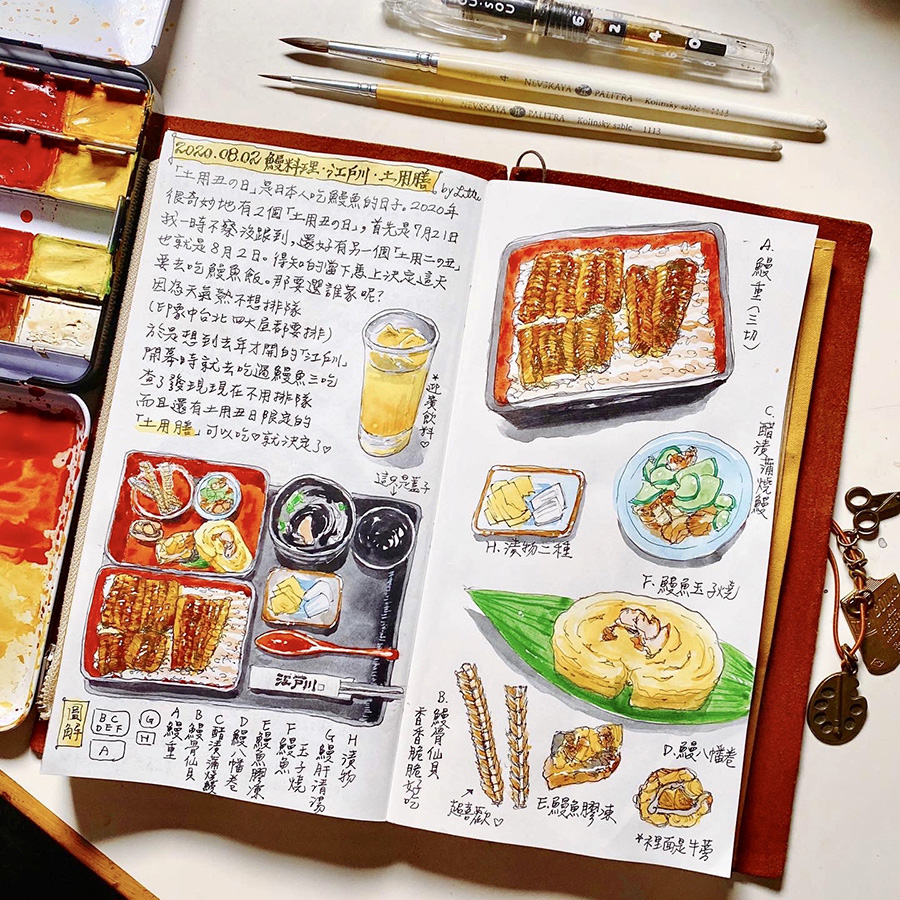 OU-SOU
6 2 4 0
NEVSKAYA PALITRA Kolinsky sable · 1113
4
NEVSKAYA PALITRA Kolinsky sable 1113
2
2020.08.02 鰻料理·江戶川·土用膳
by
「土用丑の日」是日本人吃鰻魚的日子。2020年
很奇妙地有2個「土用丑の日」,首先是7月21日
我一時不察沒跟到,還好有另一個「土用二の丑」
也就是8月2日。得知的當下馬上決定這天
要去吃鰻魚飯。那要選誰家呢?
因為天氣熱不想排隊
(印象中台北四大屋都要排)
於是想到去年才開的「江戶川」
開幕時就去吃過鰻魚三吃
查了發現現在不用排隊
而且還有土用丑日限定的
「土用膳」可以吃♡就決定了♡
*迎賓飲料♡
這只是蓋子
江戶川
圖解
B C
D E F
A
G
H
A 鰻重
B 鰻骨仙貝
C 醋漬蒲燒鰻
D 鰻八幡卷
E 鰻魚膠凍
F 鰻魚玉子燒
G 鰻肝清湯
H 漬物
A. 鰻重(三切)
C. 醋漬蒲燒鰻
H. 漬物二種
F. 鰻魚玉子燒
B. 鰻骨仙貝
香香脆脆好吃
超喜歡♡
E. 鰻魚膠凍
D. 鰻八幡卷
*裡面是牛蒡